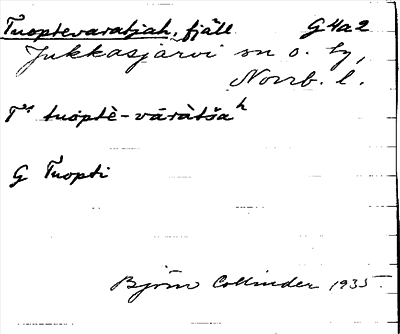 Tuoptevaratjah, fjäll. G4a2
Jukkasjärvi sn o. tg,
Norrb. l.
T⁸¹ tuoptè-vāràtša h
G Tuopti
Björn Collinder 1935